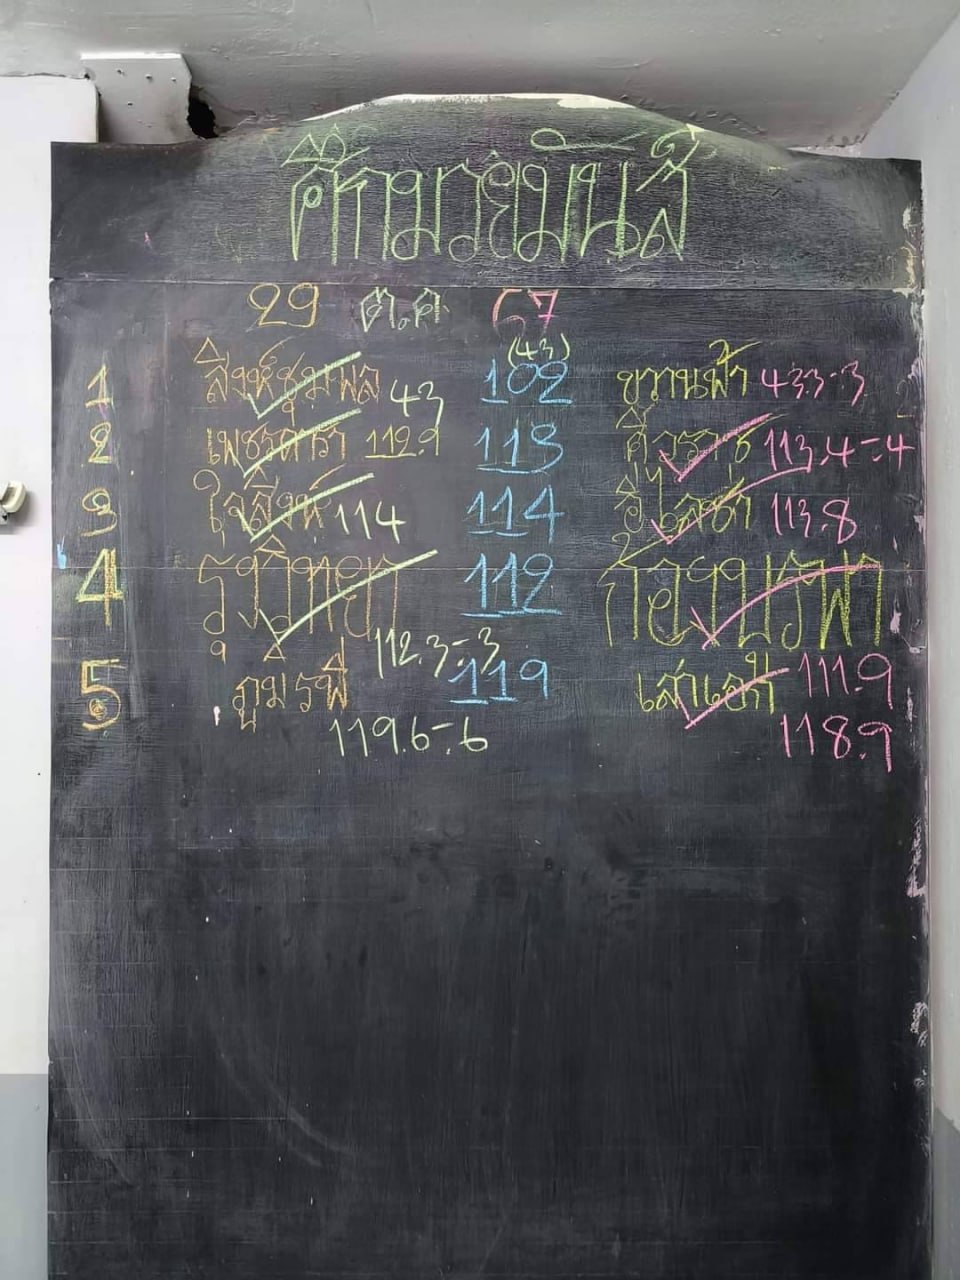 ศึกมวยมันส์
29 ต.ค 67
(43)
1 สิงห์ชุมพล 43 102 ขวานฟ้า 43.3-.3
2 เพชรดารา 112.9 113 ศิวราช 113.4-.4
3 ใจสิงห์ 114 114 113.8
4 รุ่งวิทยา 112 ก้องบูรพา
112.3-.3
5 ภูมรพี 119 เสาเอก 111.9
119.6-.6 118.9